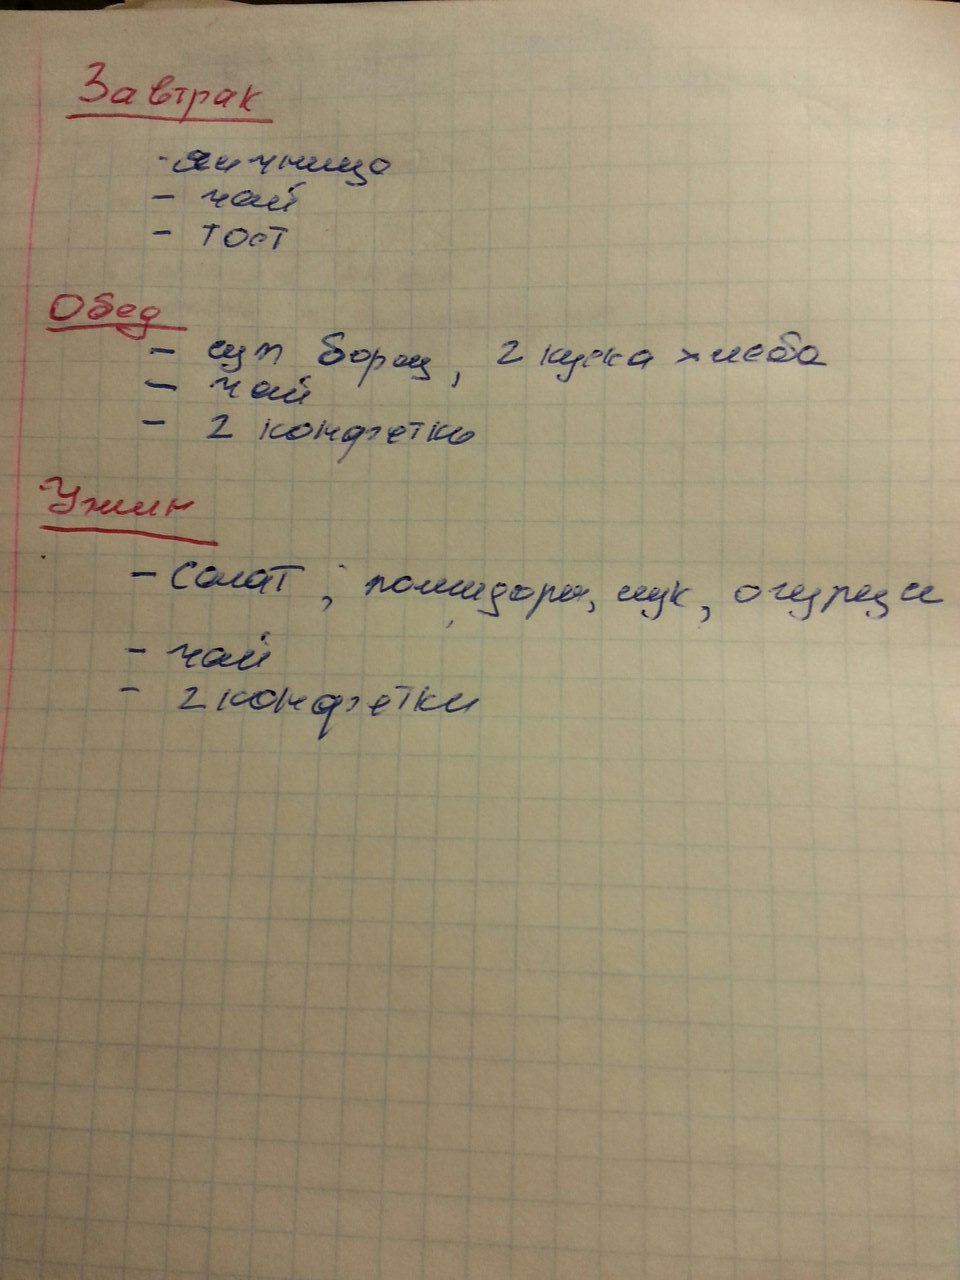 Завтрак
- яичница
- чай
- тост
Обед
- суп борщ, 2 куска хлеба
- чай
- 2 конфетки
Ужин
- салат; помидоры, лук, огурцы
- чай
- 2 конфетки